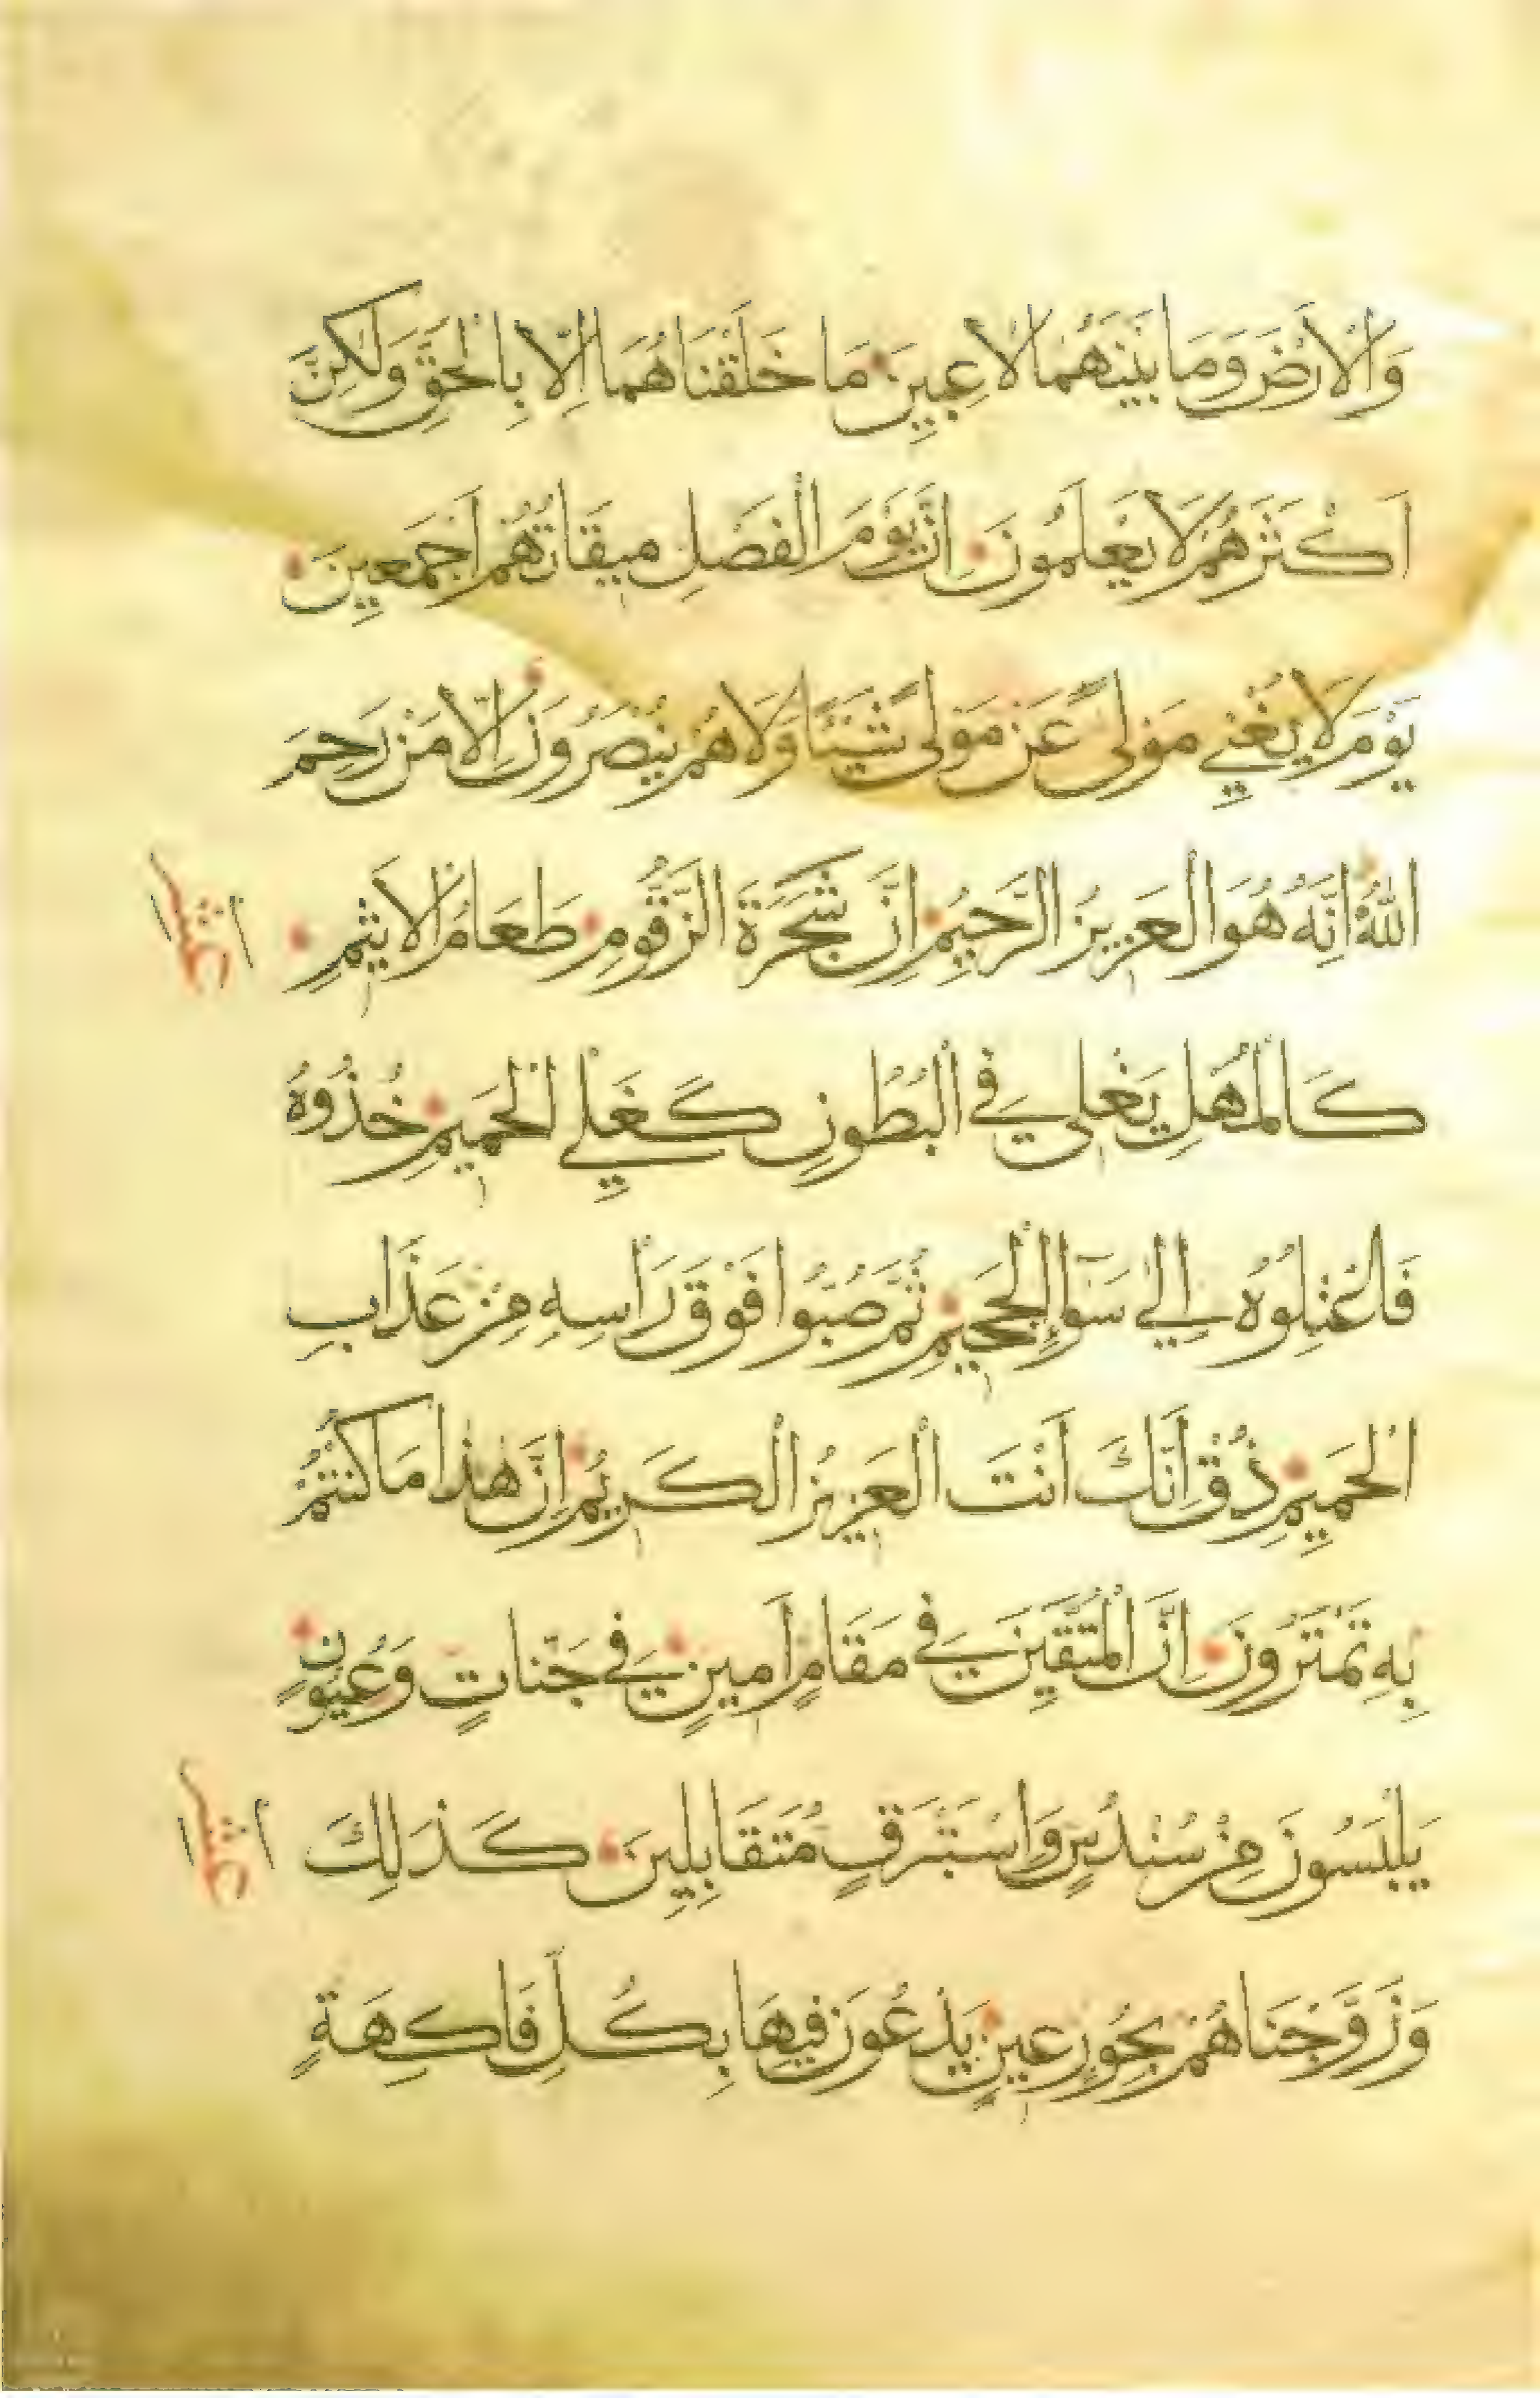 وَالْاَرْضَ وَمَا بَيْنَهُمَا لَاعِبِينَ مَا خَلَقْنَاهُمَا اِلَّا بِالْحَقِّ وَلٰكِنَّ
اَكْثَرَهُمْ لَا يَعْلَمُونَ اِنَّ يَوْمَ الْفَصْلِ مِيقَاتُهُمْ اَجْمَعِينَ
يَوْمَ لَا يُغْنِي مَوْلًى عَنْ مَوْلًى شَيْئًا وَلَا هُمْ يُنْصَرُونَ اِلَّا مَنْ رَحِمَ
اللّٰهُ اِنَّهُ هُوَ الْعَزِيزُ الرَّحِيمُ اِنَّ شَجَرَةَ الزَّقُّومِ طَعَامُ الْاَثِيمِ
كَالْمُهْلِ يَغْلِي فِي الْبُطُونِ كَغَلْيِ الْحَمِيمِ خُذُوهُ
فَاعْتِلُوهُ اِلٰي سَوَآءِ الْجَحِيمِ ثُمَّ صُبُّوا فَوْقَ رَأْسِهِ مِنْ عَذَابِ
الْحَمِيمِ ذُقْ اِنَّكَ اَنْتَ الْعَزِيزُ الْكَرِيمُ اِنَّ هٰذَا مَا كُنْتُمْ
بِهِ تَمْتَرُونَ اِنَّ الْمُتَّقِينَ فِي مَقَامٍ اَمِينٍ فِي جَنَّاتٍ وَعُيُونٍ
يَلْبَسُونَ مِنْ سُنْدُسٍ وَاِسْتَبْرَقٍ مُتَقَابِلِينَ كَذَلِكَ
وَزَوَّجْنَاهُمْ بِحُورٍ عِينٍ يَدْعُونَ فِيهَا بِكُلِّ فَاكِهَةٍ